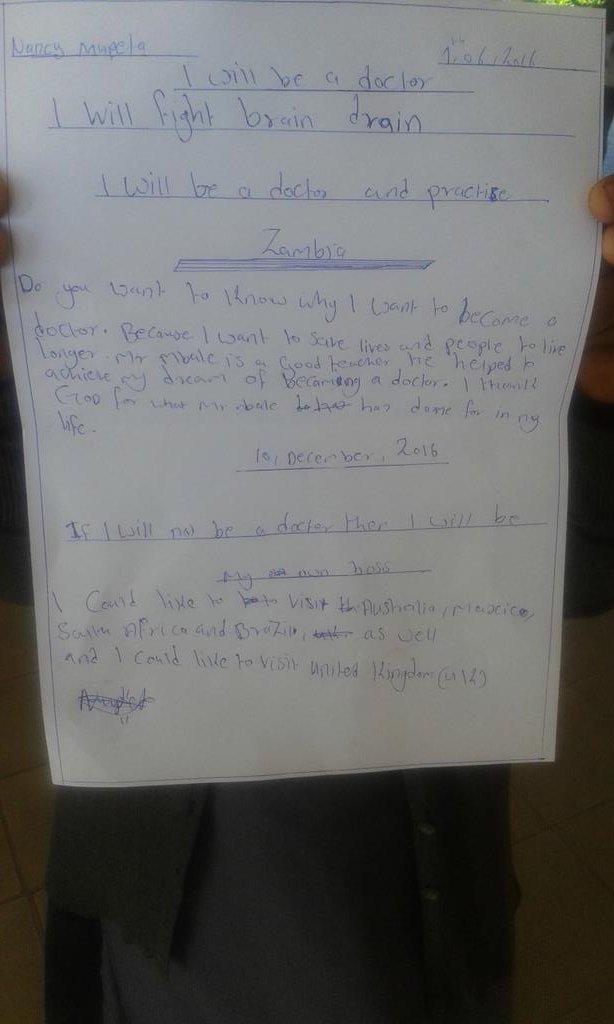 Nancy Mupeta
1st, 06, 2016
I will be a doctor
I will fight brain drain
I will be a doctor and practise
Zambia
Do you want to know why I want to become a
doctor. Because I want to save lives and people to live
longer. Mr Mbale is a Good teacher he helped to
achieve my dream of becoming a doctor. I thank
God for what Mr mbale has done for in my
life.
10, December, 2016
If I will not be a doctor then I will be
My own boss
I Could like to visit Australia, Mexico,
South Africa and Brazil, as well
and I Could like to visit United Kingdom (UK)